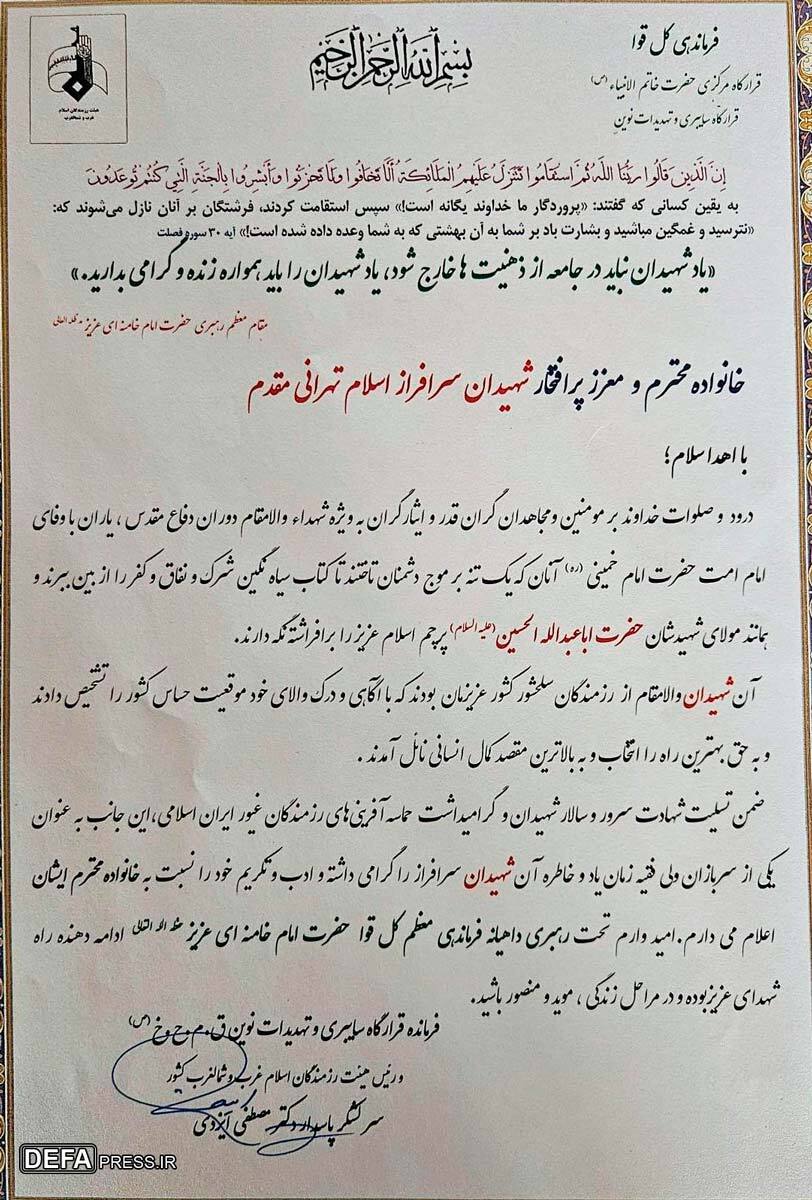 بسم الله الرحمن الرحیم
فرماندهی کل قوا
قرارگاه مرکزی حضرت خاتم الانبیاء (ص)
قرارگاه سایبری و تهدیدات نوین
هیئت رزمندگان اسلام
غرب و شمالغرب
إنَّ الَّذِينَ قَالُوا رَبُّنَا اللَّهُ ثُمَّ اسْتَقَامُوا تَتَنَزَّلُ عَلَيْهِمُ الْمَلَائِكَةُ أَلَّا تَخَافُوا وَلَا تَحْزَنُوا وَأَبْشِرُوا بِالْجَنَّةِ الَّتِي كُنتُمْ تُوعَدُونَ
به یقین کسانی که گفتند: «پروردگار ما خداوند یگانه است!» سپس استقامت کردند، فرشتگان بر آنان نازل می‌شوند که:
«نترسید و غمگین مباشید و بشارت باد بر شما به آن بهشتی که به شما وعده داده شده است!» آیه ۳۰ سوره فصلت
«یاد شهیدان نباید در جامعه از ذهنیت ها خارج شود، یاد شهیدان را باید همواره زنده و گرامی بدارید.»
مقام معظم رهبری حضرت امام خامنه ای عزیز مدظله العالی
خانواده محترم و معزز پرافتخار شهیدان سرافراز اسلام تهرانی مقدم
با اهدا سلام؛
درود و صلوات خداوند بر مومنین ومجاهدان گران قدر و ایثارگران به ویژه شهداء والامقام دوران دفاع مقدس ، یاران با وفای
امام امت حضرت امام خمینی (ره) آنان که یک تنه بر موج دشمنان تاختند تا کتاب سیاه ننگین شرک و نفاق و کفر را از بین ببرند و
همانند مولای شهیدشان حضرت اباعبدالله الحسین (علیه السلام) پرچم اسلام عزیز را برافراشته نگه دارند.
آن شهیدان والامقام از رزمندگان سلحشور کشور عزیزمان بودند که با آگاهی و درک والای خود موقعیت حساس کشور را تشخیص دادند
و به حق بهترین راه را انتخاب و به بالاترین مقصد کمال انسانی نائل آمدند .
ضمن تسلیت شهادت سرور و سالار شهیدان و گرامیداشت حماسه آفرینی‌های رزمندگان غیور ایران اسلامی،این جانب به عنوان
یکی از سربازان ولی فقیه زمان یاد و خاطره آن شهیدان سرافراز را گرامی داشته و ادب و تکریم خود را نسبت به خانواده محترم ایشان
اعلام می دارم.امید وارم تحت رهبری داهیانه فرماندهی معظم کل قوا حضرت امام خامنه ای عزیز حفظه الله تعالی ادامه دهنده راه
شهدای عزیزبوده و در مراحل زندگی ، موید و منصور باشید.
فرمانده قرارگاه سایبری و تهدیدات نوین ق.م.ح.خ (ص)
و رئیس هیئت رزمندگان اسلام غرب و شمالغرب کشور
سرلشکر پاسدار دکتر مصطفی ایزدی
DEFAPRESS.IR